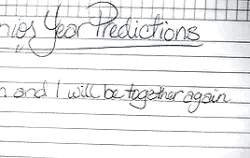 nior Year Predictions
and I will be together again